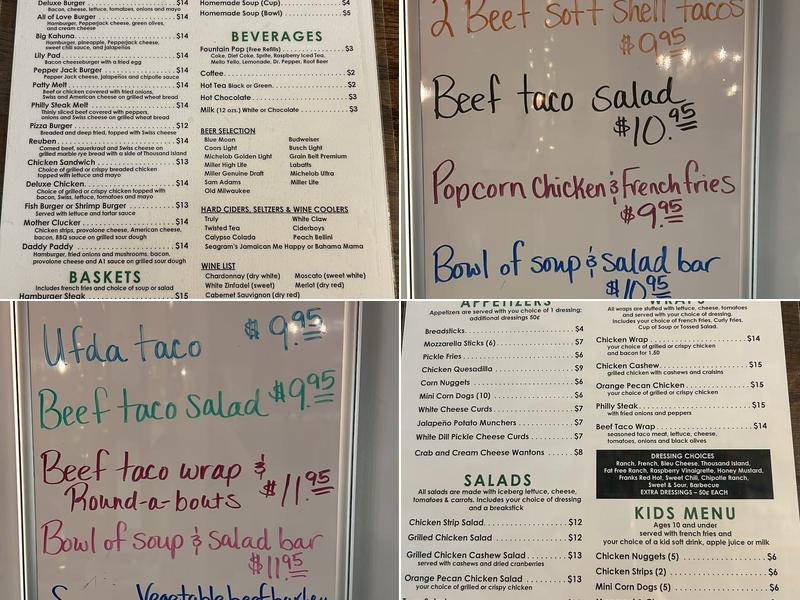 Deluxe Burger $14
Bacon, cheese, lettuce, tomatoes, onions and mayo
All of Love Burger $14
Hamburger, Pepperjack cheese, green olives,
and cream cheese
Big Kahuna $14
Hamburger, pineapple, Pepperjack cheese,
sweet chili sauce, and jalapeños
Lily Pad $14
Bacon cheeseburger with a fried egg
Pepper Jack Burger $14
Pepper Jack cheese, jalapeños and chipotle sauce
Patty Melt $14
Beef or chicken covered with fried onions,
Swiss and American cheese on grilled wheat bread
Philly Steak Melt $14
Thinly sliced beef covered with peppers,
onions and Swiss cheese on grilled wheat bread
Pizza Burger $12
Breaded and deep fried, topped with Swiss cheese
Reuben $14
Corned beef, sauerkraut and Swiss cheese on
grilled marble rye bread with a side of Thousand Island
Chicken Sandwich $13
Choice of grilled or crispy breaded chicken
topped with lettuce and mayo
Deluxe Chicken $14
Choice of grilled or crispy chicken topped with
bacon, Swiss, lettuce, tomatoes and mayo
Fish Burger or Shrimp Burger $13
Served with lettuce and tartar sauce
Mother Clucker $14
Chicken strips, provolone cheese, American cheese,
bacon, BBQ sauce on grilled sour dough
Daddy Paddy $14
Hamburger, fried onions and mushrooms, bacon,
provolone cheese and A1 sauce on grilled sour dough
BASKETS
Includes french fries and choice of soup or salad
Hamburger Steak $15
Homemade Soup (Cup) $4
Homemade Soup (Bowl) $5
BEVERAGES
Fountain Pop (Free Refills) $3
Coke, Diet Coke, Sprite, Raspberry Iced Tea,
Mello Yello, Lemonade, Dr. Pepper, Root Beer
Coffee $2
Hot Tea Black or Green $2
Hot Chocolate $3
Milk (12 ozs.) White or Chocolate $3
BEER SELECTION
Blue Moon Budweiser
Coors Light Busch Light
Michelob Golden Light Grain Belt Premium
Miller High Life Labatts
Miller Genuine Draft Michelob Ultra
Sam Adams Miller Lite
Old Milwaukee
HARD CIDERS, SELTZERS & WINE COOLERS
Truly White Claw
Twisted Tea Ciderboys
Calypso Colada Peach Bellini
Seagram's Jamaican Me Happy or Bahama Mama
WINE LIST
Chardonnay (dry white) Moscato (sweet white)
White Zinfadel (sweet) Merlot (dry red)
Cabernet Sauvignon (dry red)
2 Beef Soft Shell tacos
$9.95
Beef taco salad
$10.95
Popcorn Chicken & French fries
$9.95
Bowl of soup & salad bar
$10.95
Ufda taco $9.95
Beef taco salad $9.95
Beef taco wrap &
Round-a-bouts $11.95
Bowl of soup & salad bar
$11.95
Vegetable beef barley
APPETIZERS
Appetizers are served with you choice of 1 dressing;
additional dressings 50¢
Breadsticks $4
Mozzarella Sticks (6) $7
Pickle Fries $6
Chicken Quesadilla $9
Corn Nuggets $6
Mini Corn Dogs (10) $6
White Cheese Curds $7
Jalapeño Potato Munchers $7
White Dill Pickle Cheese Curds $7
Crab and Cream Cheese Wantons $8
SALADS
All salads are made with iceberg lettuce, cheese,
tomatoes & carrots. Includes your choice of dressing
and a breadstick
Chicken Strip Salad $12
Grilled Chicken Salad $12
Grilled Chicken Cashew Salad $13
served with cashews and dried cranberries
Orange Pecan Chicken Salad $13
your choice of grilled or crispy chicken
WRAPS
All wraps are stuffed with lettuce, cheese, tomatoes
and served with your choice of dressing.
Includes your choice of French Fries, Curly Fries,
Cup of Soup or Tossed Salad.
Chicken Wrap $14
your choice of grilled or crispy chicken
and bacon for 1.50
Chicken Cashew $15
grilled chicken with cashews and craisins
Orange Pecan Chicken $15
your choice of grilled or crispy chicken
Philly Steak $15
with fried onions and peppers
Beef Taco Wrap $14
seasoned taco meat, lettuce, cheese,
tomatoes, onions and black olives
DRESSING CHOICES
Ranch, French, Bleu Cheese, Thousand Island,
Fat Free Ranch, Raspberry Vinaigrette, Honey Mustard,
Franks Red Hot, Sweet Chili, Chipotle Ranch,
Sweet & Sour, Barbecue
EXTRA DRESSINGS – 50¢ EACH
KIDS MENU
Ages 10 and under
served with french fries and
your choice of a kid soft drink, apple juice or milk
Chicken Nuggets (5) $6
Chicken Strips (2) $6
Mini Corn Dogs (5) $6